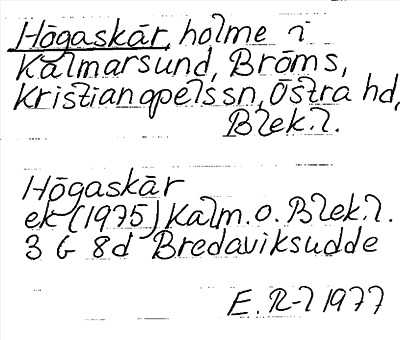 Högaskär, holme i
Kalmarsund, Bröms,
Kristianopels sn, Östra hd,
Blek.l.
Högaskär
ek (1975) Kalm. o. Blek.l.
3 G 8d Bredaviksudde
E. R-l 1977